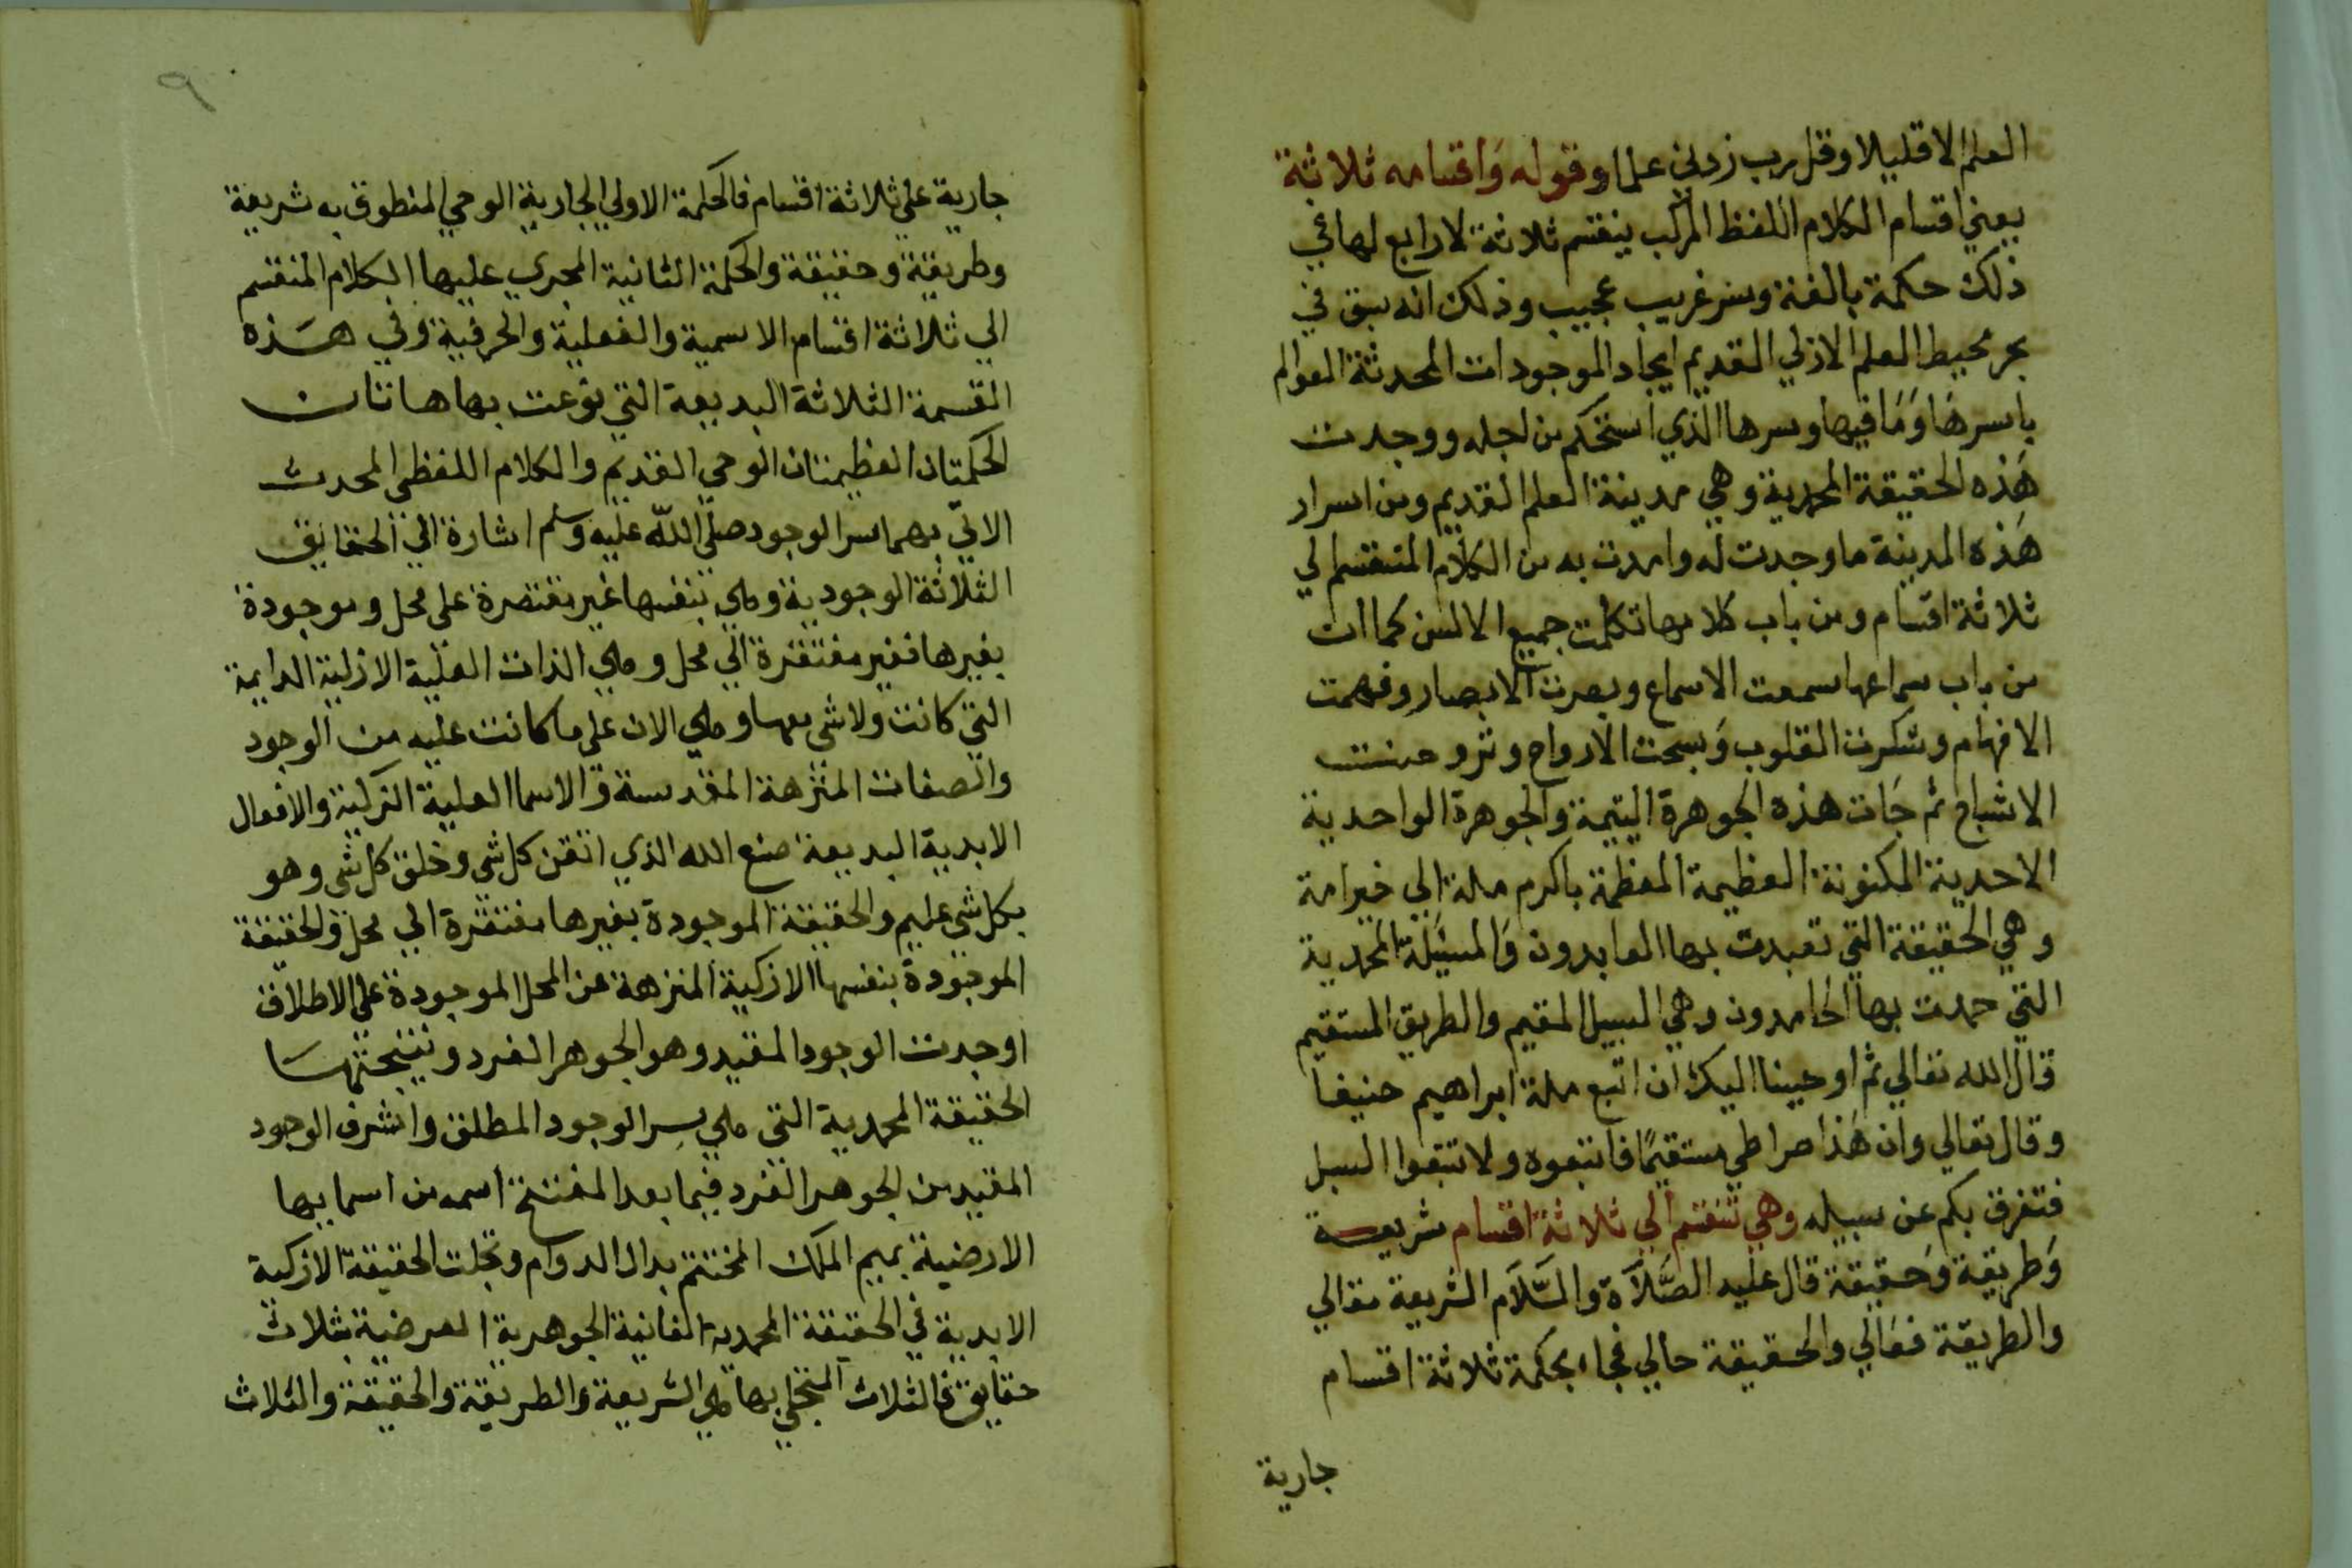 العلم الا قليلا وقل رب زدني علما وقوله واقسامه ثلاثة
يعني اقسام الكلام اللفظ المركب ينقسم ثلاثة لا رابع لها في
ذلك حكمة بالغة وسر غريب عجيب وذلك انه سبق في
بحر محيط العلم الازلي القديم ايجاد الموجودات المحدثة العوالم
باسرها وما فيها وسرها الذي استحكم من اجله ووجدت
هذه الحقيقة المحمدية وهي مدينة العلم القديم ومن اسرار
هذه المدينة ما وجدت له وامدت به من الكلام المنقسم الي
ثلاثة اقسام ومن باب كلامها تكلمت جميع الالسن كما ان
من باب سماعها سمعت الاسماع وبصرت الابصار وفهمت
الافهام وشكرت القلوب وسبحت الارواح وتروحنت
الاشباح ثم جات هذه الجوهرة اليتيمة والجوهرة الواحدية
الاحدية المكنونة العظيمة المعظمة باكرم ملة الي خير امة
وهي الحقيقة التي تعبدت بها العابدون والمسئلة المحمدية
التي حمدت بها الحامدون وهي السبيل المقيم والطريق المستقيم
قال الله تعالي ثم اوحينا اليك ان اتبع ملة ابراهيم حنيفا
وقال تعالي وان هذا صراطي مستقيمًا فاتبعوه ولا تتبعوا السبل
فتفرق بكم عن سبيله وهي تنقسم الي ثلاثة اقسام شريعة
وطريقة وحقيقة قال عليه الصَّلاة والسَّلام الشريعة مقالي
والطريقة فعالي والحقيقة حالي فجاء بحكمة ثلاثة اقسام
جارية
٩
جارية علي ثلاثة اقسام فالحكمة الاولي الجارية الوحي المنطوق به شريعة
وطريقة وحقيقة والحكمة الثانية المجري عليها الكلام المنقسم
الي ثلاثة اقسام الاسمية والفعلية والحرفية وفي هذه
القسمة الثلاثة البديعة التي نوعت بها هاتان
الحكمتان العظيمتان الوحي القديم والكلام اللفظي المحدث
الاتي بهما سر الوجود صلي الله عليه وسلم اشارة الي الحقايق
الثلاثة الوجودية وهي بنفسها غير مقتصرة علي محل وموجودة
بغيرها فغير مفتقرة الي محل وهي الذات العلية الازلية الدايمة
التي كانت ولا شي معها وهي الان علي ما كانت عليه من الوجود
والصفات المنزهة المقدسة والاسما العلية التركية والافعال
الابدية البديعة صنع الله الذي اتقن كل شي وخلق كل شي وهو
بكل شي عليم والحقيقة الموجودة بغيرها مفتقرة الي محل والحقيقة
الموجودة بنفسها الازكية المنزهة عن المحل الموجودة علي الاطلاق
اوجدت الوجود المقيد وهو الجوهر الفرد ونتيجتها
الحقيقة المحمدية التي هي سر الوجود المطلق واشرف الوجود
المقيد من الجوهر الفرد فيما بعد المفتتح اسمه من اسمايها
الارضية بميم الملك المختتم بدال الدوام وتجلت الحقيقة الازكية
الابدية في الحقيقة المحمدية الفانية الجوهرية العرضية بثلاث
حقايق فالثلاث المتجلي بها هي الشريعة والطريقة والحقيقة والثلاث